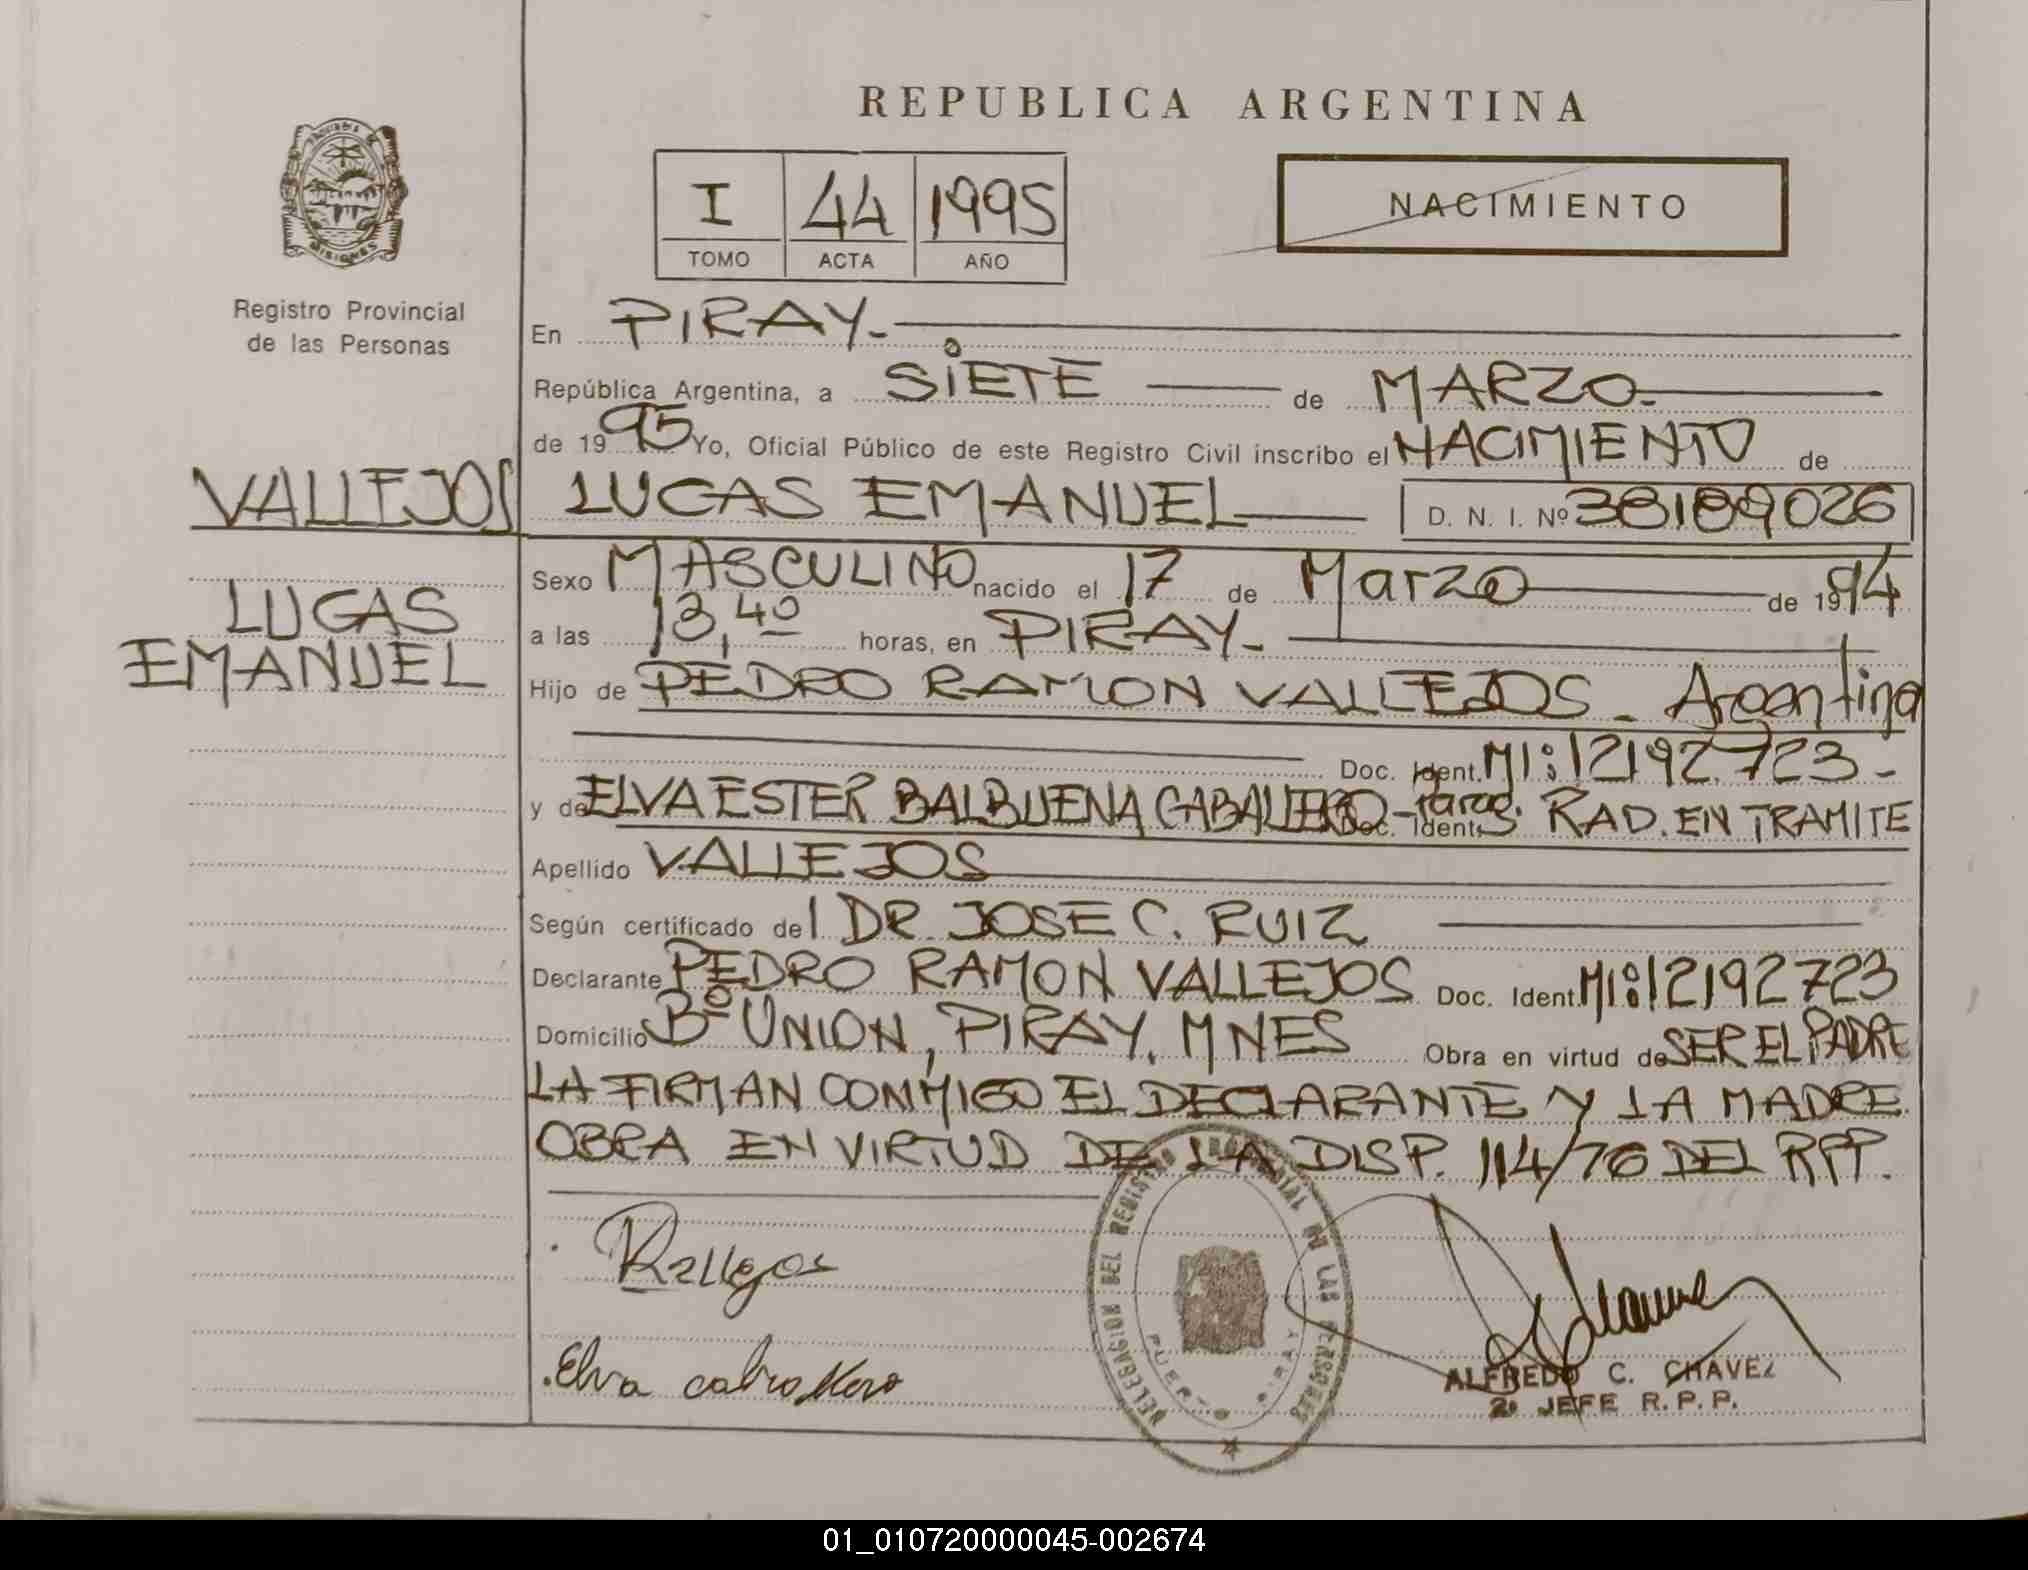 REPUBLICA ARGENTINA
PROVINCIA DE
MISIONES
Registro Provincial
de las Personas
I 44 1995
TOMO ACTA AÑO
NACIMIENTO
En PIRAY.-
República Argentina, a SIETE de MARZO.-
de 1995 Yo, Oficial Público de este Registro Civil inscribo el NACIMIENTO de
VALLEJOS LUCAS EMANUEL D. N. I. Nº 38189026
LUCAS
EMANUEL
Sexo MASCULINO nacido el 17 de Marzo de 1994
a las 13,40 horas, en PIRAY.-
Hijo de PEDRO RAMON VALLEJOS - Argentina
Doc. Ident. MI: 12192723-
y de ELVA ESTER BALBUENA CABALLERO - Parag. Doc. Ident. RAD. EN TRAMITE
Apellido VALLEJOS
Según certificado del DR. JOSE C. RUIZ
Declarante PEDRO RAMON VALLEJOS Doc. Ident. MI: 12192723
Domicilio Bº UNION, PIRAY, MNES Obra en virtud de SER EL PADRE
LA FIRMAN CONMIGO EL DECLARANTE Y LA MADRE
OBRA EN VIRTUD DE LA DISP. 114/76 DEL RPP.
Vallejos
Elva caballero
DELEGACION DEL REGISTRO PROVINCIAL DE LAS PERSONAS
PUERTO PIRAY
ALFREDO C. CHAVEZ
2º JEFE R. P. P.
01_010720000045-002674